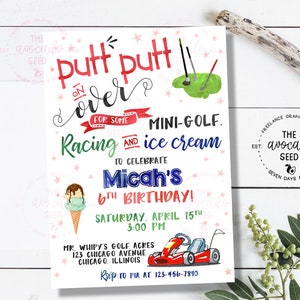 putt putt
on
over
FOR SOME MINI-GOLF,
Racing AND ice cream
TO CELEBRATE
Micah's
6TH BIRTHDAY!
SATURDAY, APRIL 15TH
3:00 PM
MR. WHIPY'S GOLF ACRES
123 CHICAGO AVENUE
CHICAGO, ILLINOIS
RSVP TO PIA AT 123-456-7890
THE
avocado
SEED
FREELANCE GRAPHIC
EST.
THE
avocado
SEED
SEVEN DAYS A